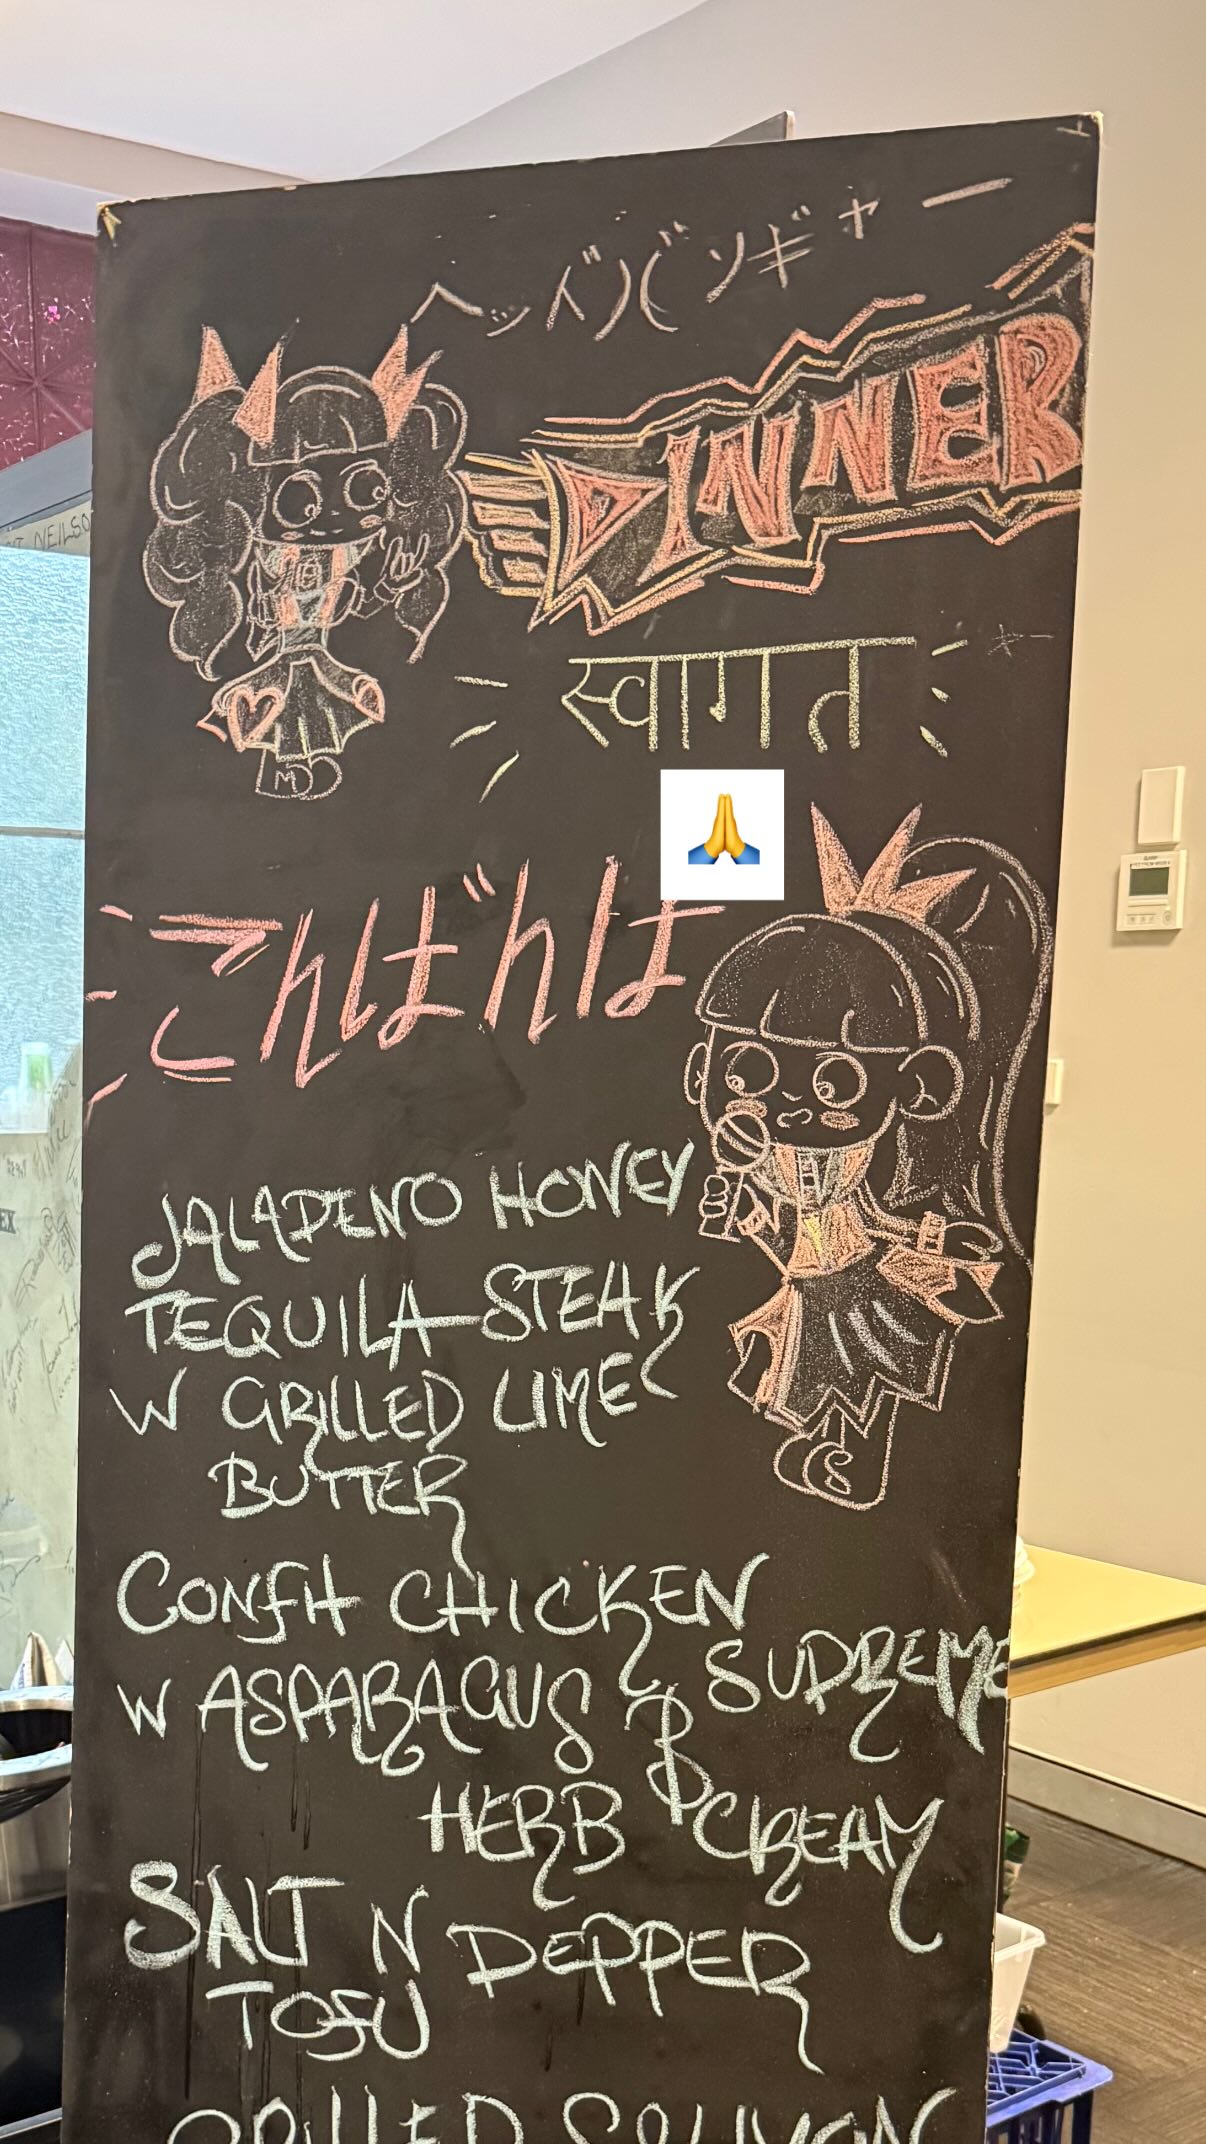 ヘッドバンギャー
DINNER
स्वागत
🙏
こんばんは
JALAPENO HONEY
TEQUILA STEAK
W GRILLED LIME
BUTTER
CONFIT CHICKEN
W ASPARAGUS & SUPREME
HERB CREAM
SALT N PEPPER
TOFU
GRILLED SALMON
MD
S
NEILSO